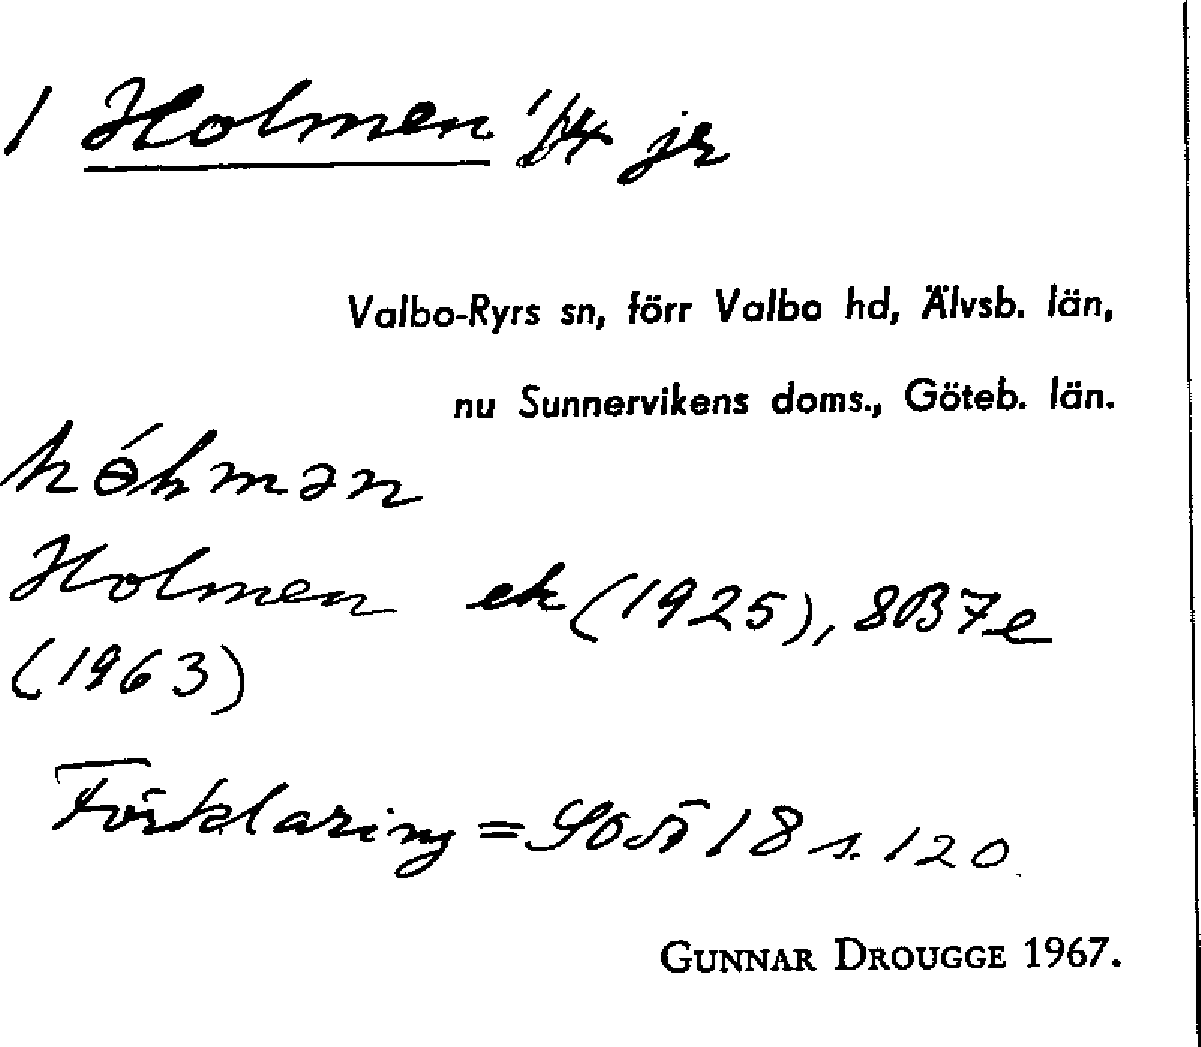 1 Holmen 1/4 jr
Valbo-Ryrs sn, förr Valbo hd, Älvsb. län,
nu Sunnervikens doms., Göteb. län.
hɵ́lmən
Holmen ek (1925), 8B7e
(1963)
Förklaring = SOÄ 18 s. 120.
GUNNAR DROUGGE 1967.